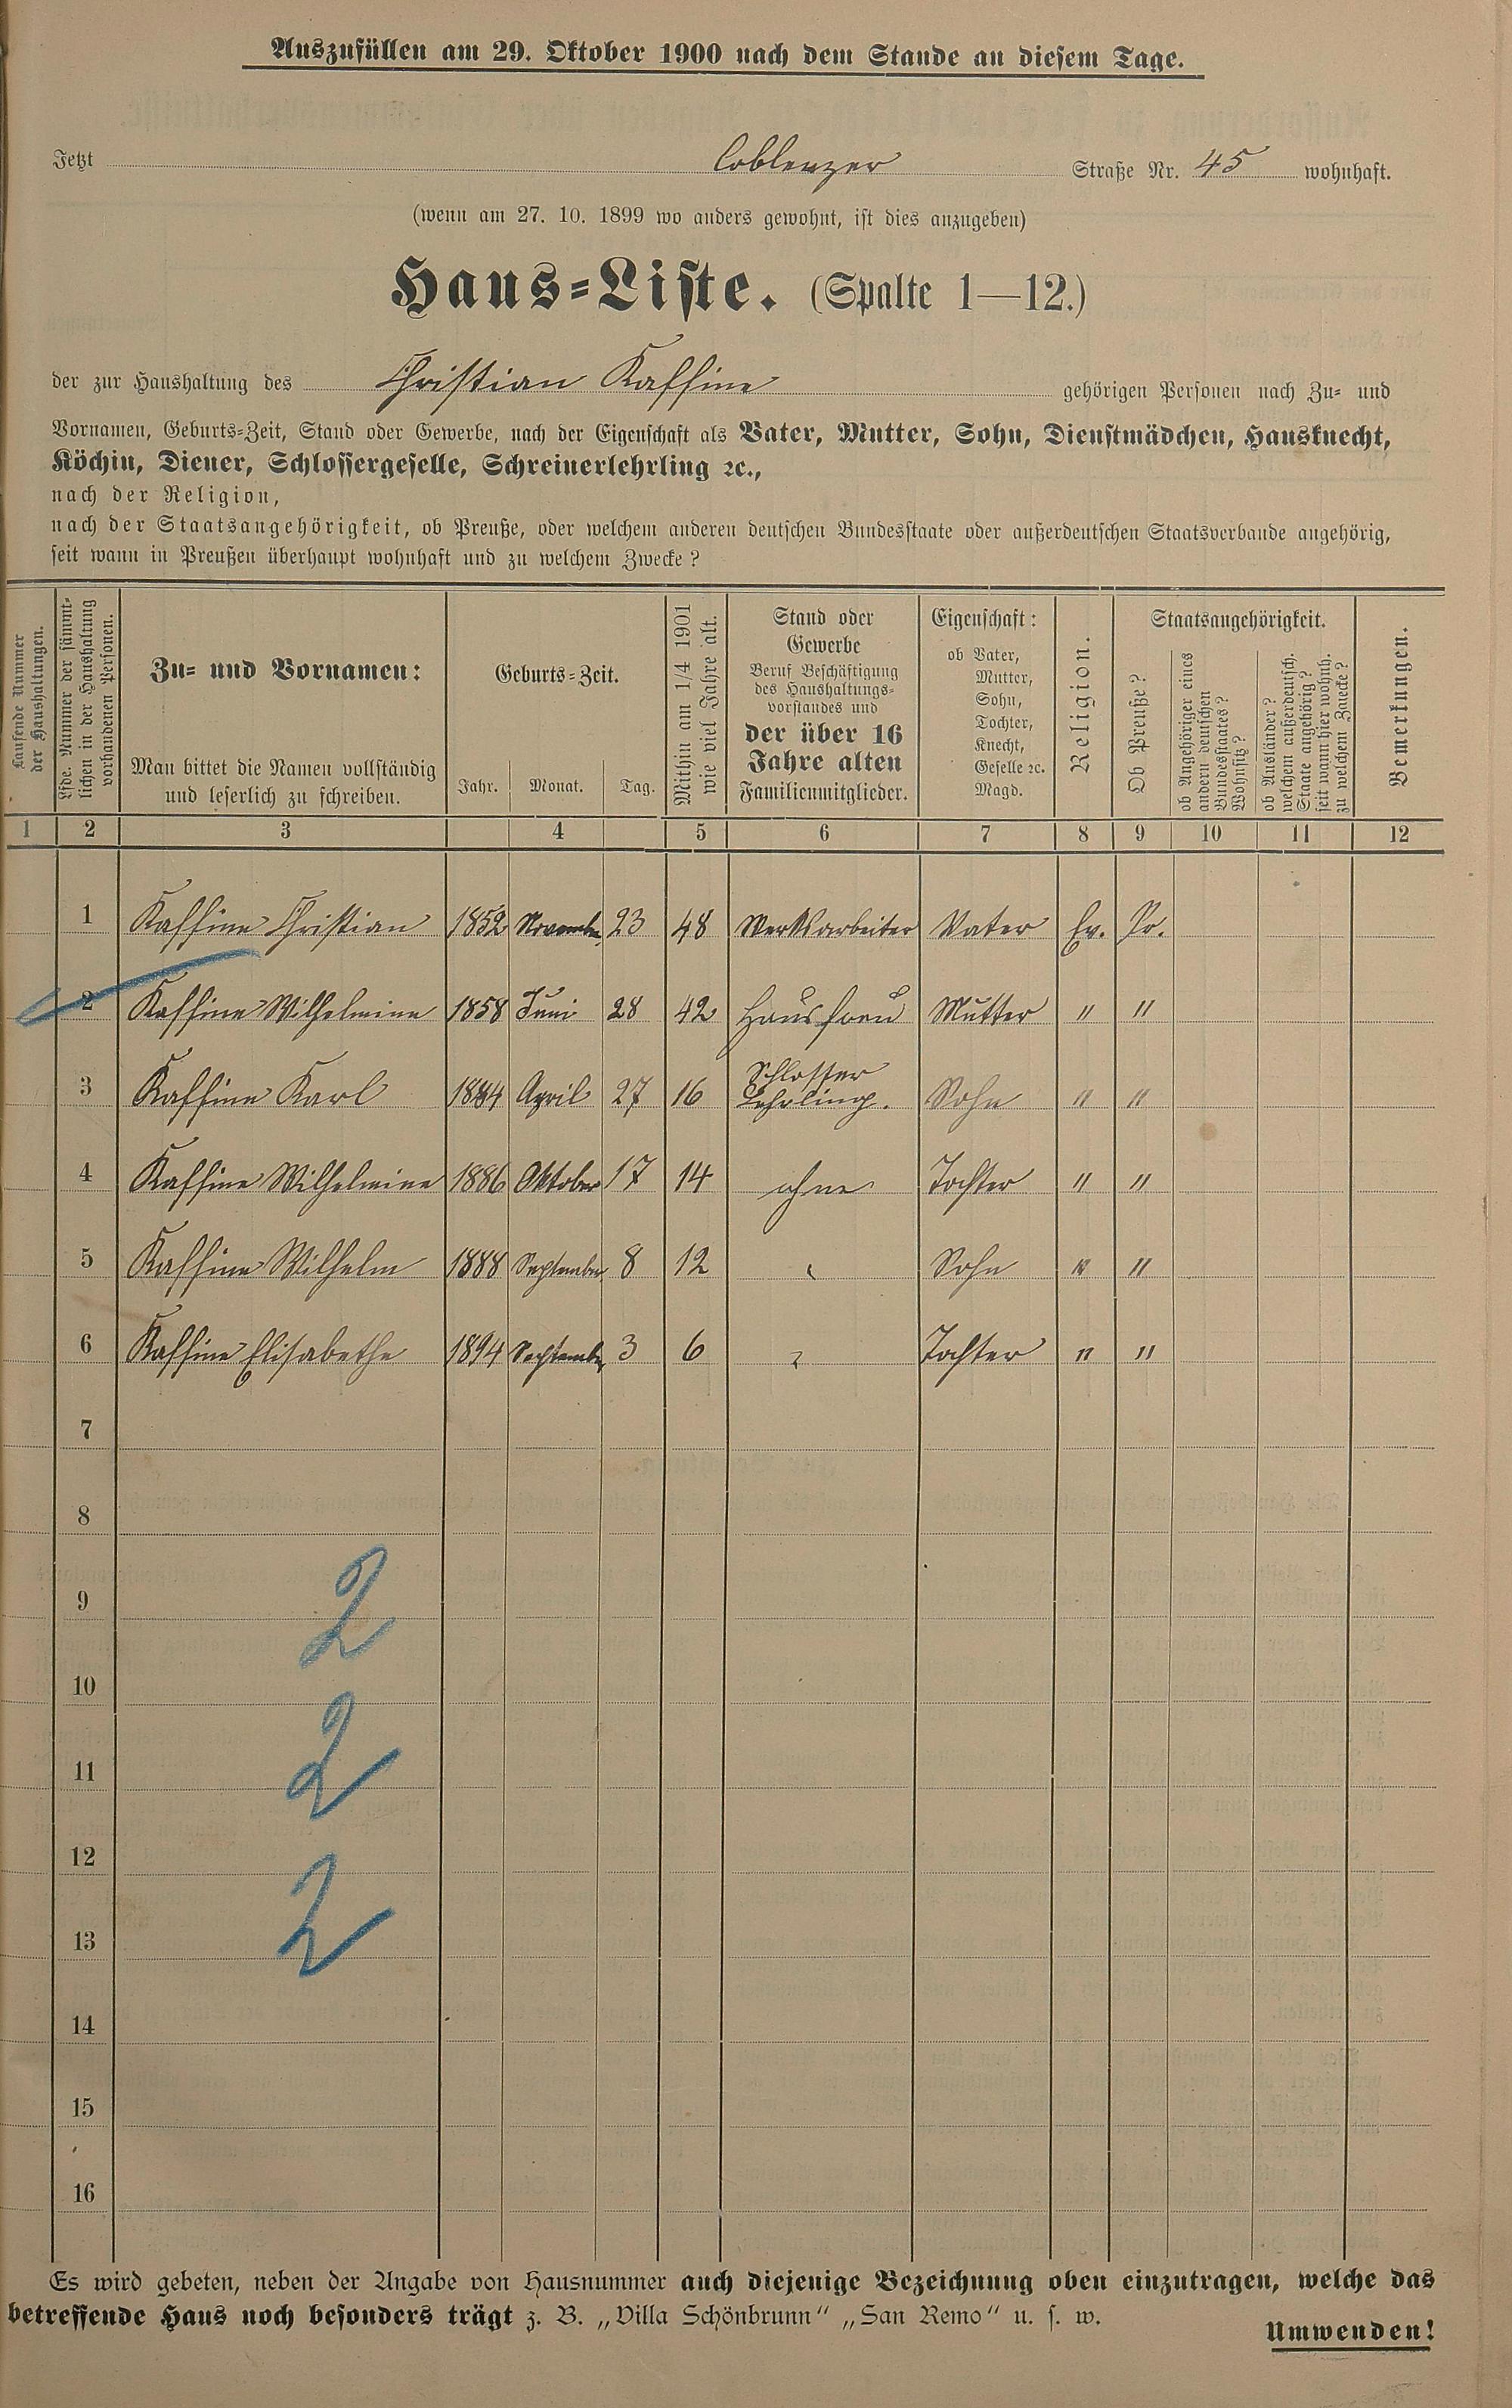 Auszufüllen am 29. Oktober 1900 nach dem Stande an diesem Tage.
Jetzt Coblenzer Straße Nr. 45 wohnhaft.
(wenn am 27. 10. 1899 wo anders gewohnt, ist dies anzugeben)
Haus-Liste. (Spalte 1—12.)
der zur Haushaltung des Christian Kaffine gehörigen Personen nach Zu- und
Vornamen, Geburts-Zeit, Stand oder Gewerbe, nach der Eigenschaft als Vater, Mutter, Sohn, Dienstmädchen, Hausknecht,
Köchin, Diener, Schlossergeselle, Schreinerlehrling ꝛc.,
nach der Religion,
nach der Staatsangehörigkeit, ob Preuße, oder welchem anderen deutschen Bundesstaate oder außerdeutschen Staatsverbande angehörig,
seit wann in Preußen überhaupt wohnhaft und zu welchem Zwecke?
Laufende Nummer
der Haushaltungen.
Lfde. Nummer der sämmt-
lichen in der Haushaltung
vorhandenen Personen.
Zu- und Vornamen:
Man bittet die Namen vollständig
und leserlich zu schreiben.
Geburts-Zeit.
Jahr. Monat. Tag.
Mithin am 1/4 1901
wie viel Jahre alt.
Stand oder
Gewerbe
Beruf Beschäftigung
des Haushaltungs-
vorstandes und
der über 16
Jahre alten
Familienmitglieder.
Eigenschaft:
ob Vater,
Mutter,
Sohn,
Tochter,
Knecht,
Geselle ꝛc.
Magd.
Religion.
Staatsangehörigkeit.
Ob Preuße?
ob Angehöriger eines
andern deutschen
Bundesstaates?
Wohnsitz?
ob Ausländer?
welchem außerdeutsch.
Staate angehörig?
seit wann hier wohnh.
zu welchem Zwecke?
Bemerkungen.
1 2 3 4 5 6 7 8 9 10 11 12
1 Kaffine Christian 1852 November 23 48 Werksarbeiter Vater Ev. Pr.
2 Kaffine Wilhelmine 1858 Juni 28 42 Hausfrau Mutter " "
3 Kaffine Karl 1884 April 27 16 Schlosser Lehrling. Sohn " "
4 Kaffine Wilhelmine 1886 Oktober 17 14 ohne Tochter " "
5 Kaffine Wilhelm 1888 September 8 12 " Sohn " "
6 Kaffine Elisabethe 1894 September 3 6 " Tochter " "
7
8
9
2
10
11
2
12
13
2
14
15
16
Es wird gebeten, neben der Angabe von Hausnummer auch diejenige Bezeichnung oben einzutragen, welche das
betreffende Haus noch besonders trägt z. B. „Villa Schönbrunn“ „San Remo“ u. s. w.
Umwenden!